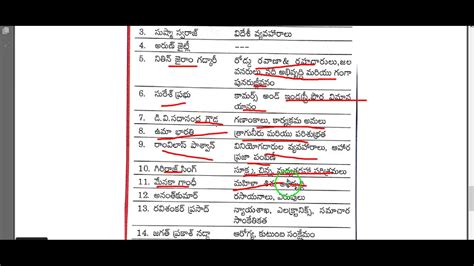 3. సుష్మా స్వరాజ్ విదేశీ వ్యవహారాలు
4. అరుణ్ జైట్లీ ---
5. నితిన్ జైరాం గడ్కారీ రోడ్డు రవాణా& రహదారులు,జల
వనరులు, నదీ అభివృద్ధి మరియు గంగా
పునరుజ్జీవనం
6. సురేశ్ ప్రభు కామర్స్ అండ్ ఇండస్ట్రీ,పౌర విమాన
యానం
7. డి.వి.సదానంద గౌడ గణాంకాలు, కార్యక్రమ అమలు
8. ఉమా భారతి త్రాగునీరు మరియు పరిశుభ్రత
9. రాంవిలాస్ పాశ్వాన్ వినియోగదారుల వ్యవహారాలు, ఆహార
ప్రజా పంపిణీ
10. గిరిరాజ్ సింగ్ సూక్ష్మ, చిన్న, మధ్యతరహా పరిశ్రమలు
11. మేనకా గాంధీ మహిళా, శిశు
12. అనంత్‌కుమార్ రసాయనాలు, ఎరువులు
13. రవిశంకర్ ప్రసాద్ న్యాయశాఖ, ఎలక్ట్రానిక్స్, సమాచార
సాంకేతికత
14. జగత్ ప్రకాశ్ నడ్డా ఆరోగ్య, కుటుంబ సంక్షేమం